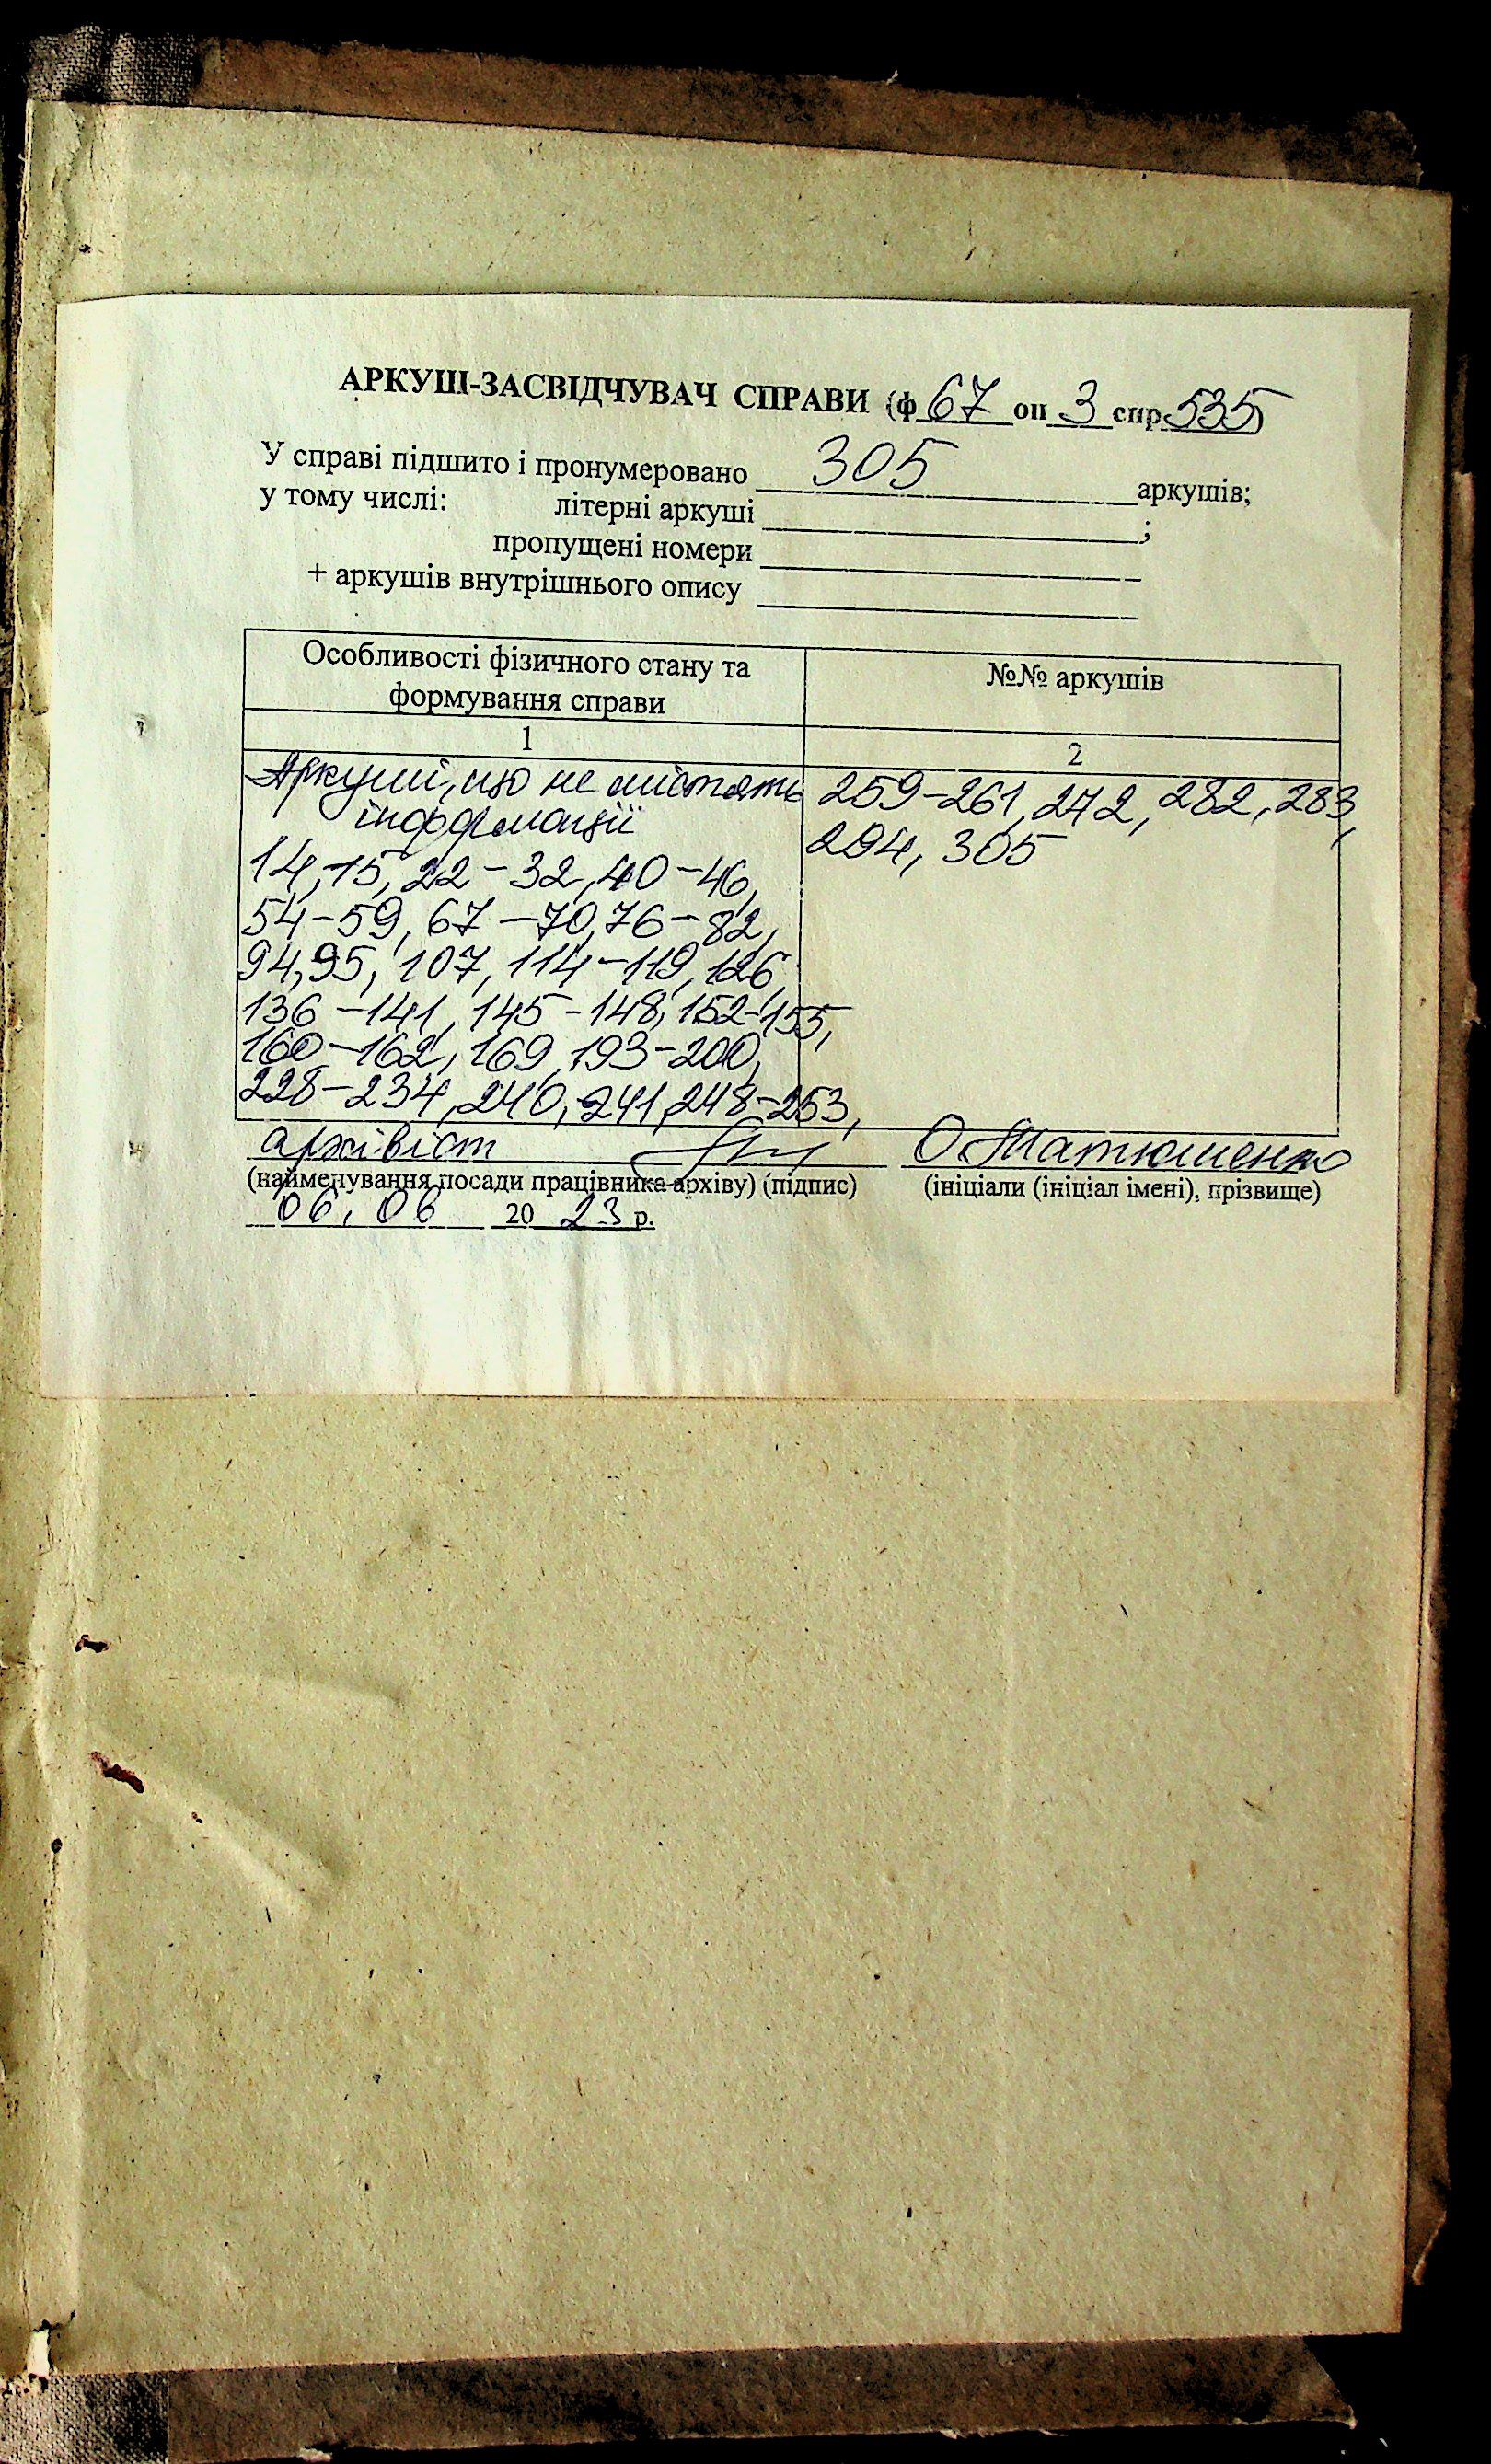 АРКУШ-ЗАСВІДЧУВАЧ СПРАВИ (ф 67 оп 3 спр 535)
У справі підшито і пронумеровано 305 аркушів;
у тому числі: літерні аркуші ;
пропущені номери
+ аркушів внутрішнього опису
Особливості фізичного стану та формування справи
№№ аркушів
1
2
Аркуші, що не містять
інформації
14, 15, 22-32, 40-46,
54-59, 67-70, 76-82,
94, 95, 107, 114-119, 126,
136-141, 145-148, 152-155,
160-162, 169, 193-200,
228-234, 240, 241, 248-253,
259-261, 272, 282, 283,
294, 305
архівіст О Матюшенко
(найменування посади працівника архіву) (підпис) (ініціали (ініціал імені), прізвище)
06.06 20 23 р.